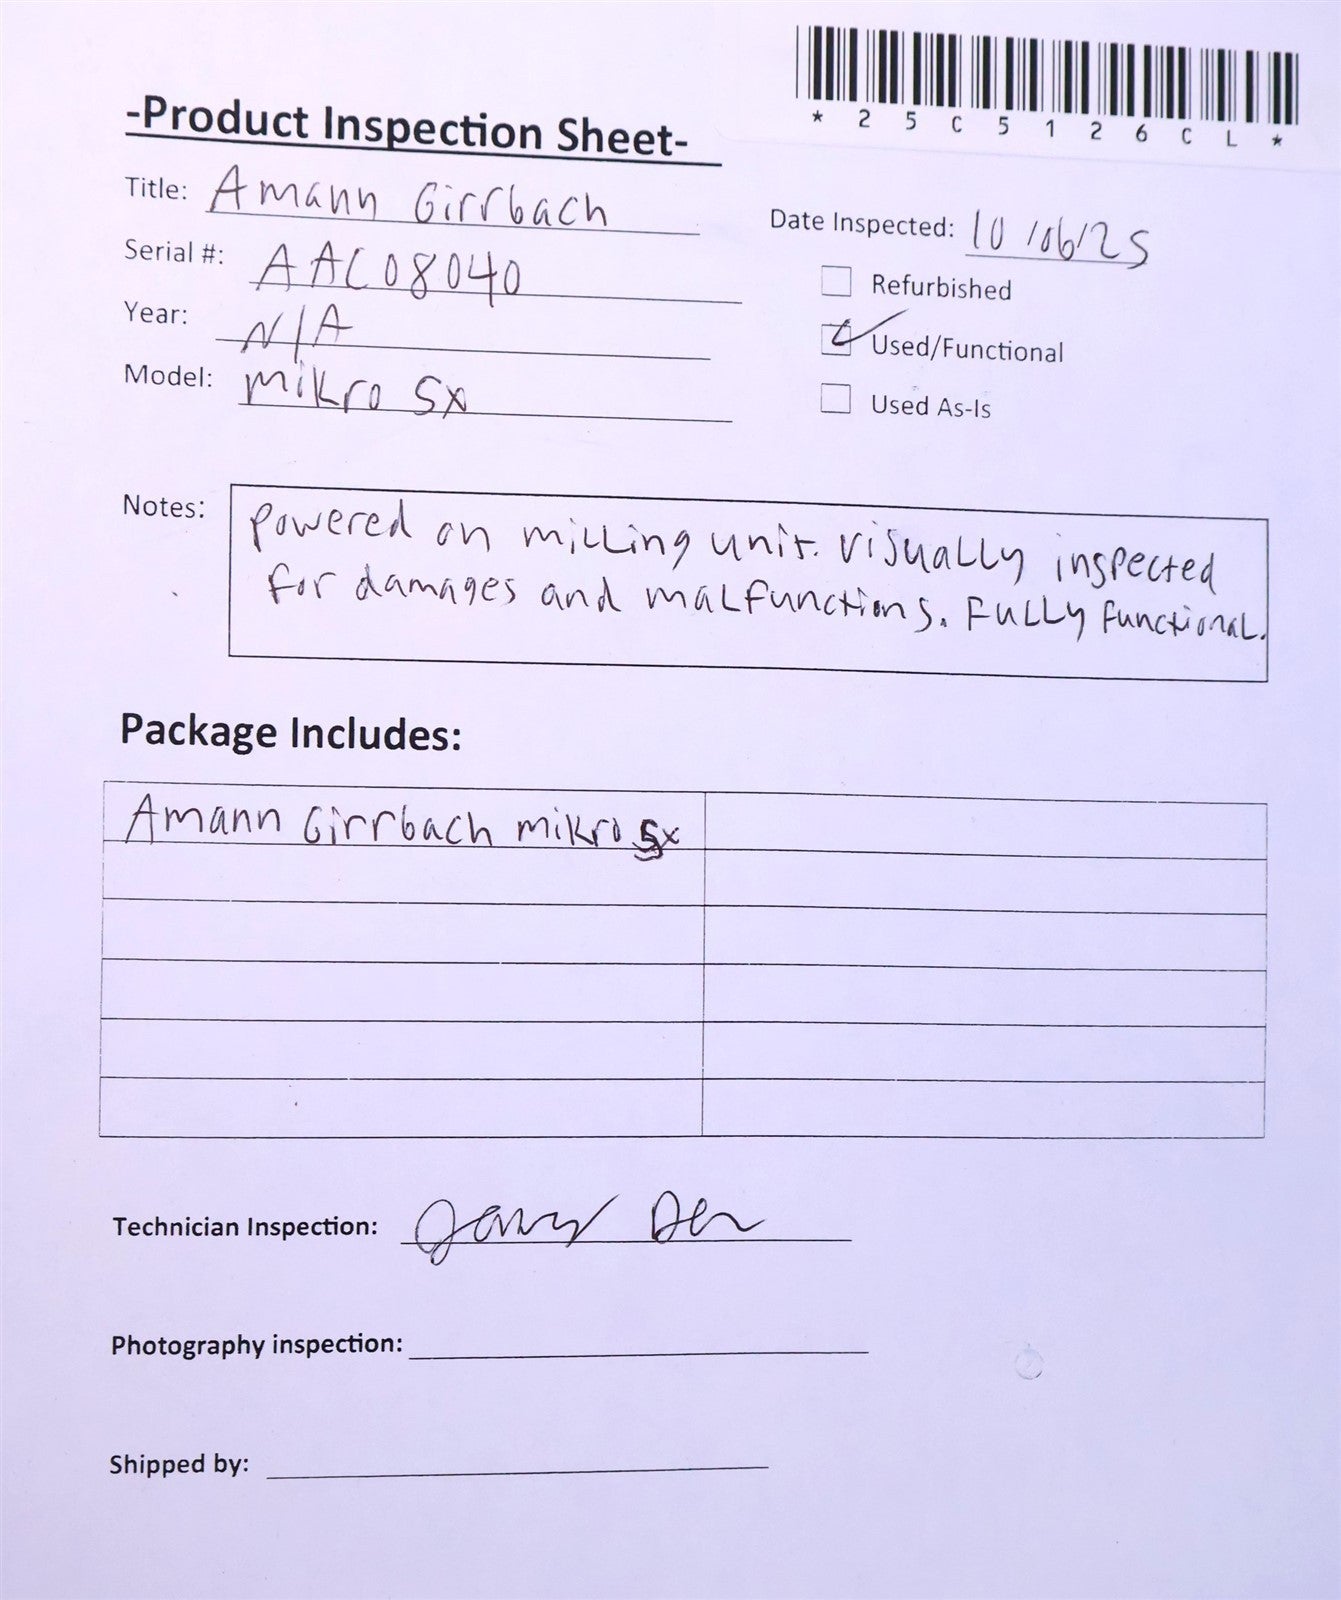 *25C5126CL*
-Product Inspection Sheet-
Title: Amann Girrbach
Date Inspected: 10/06/25
Serial #: AAC08040
Refurbished
Year: N/A
Used/Functional
Model: mikro 5x
Used As-Is
Notes: Powered on milling unit. visually inspected
for damages and malfunctions. Fully functional.
Package Includes:
Amann Girrbach mikro 5x
Technician Inspection:
Photography inspection:
Shipped by: